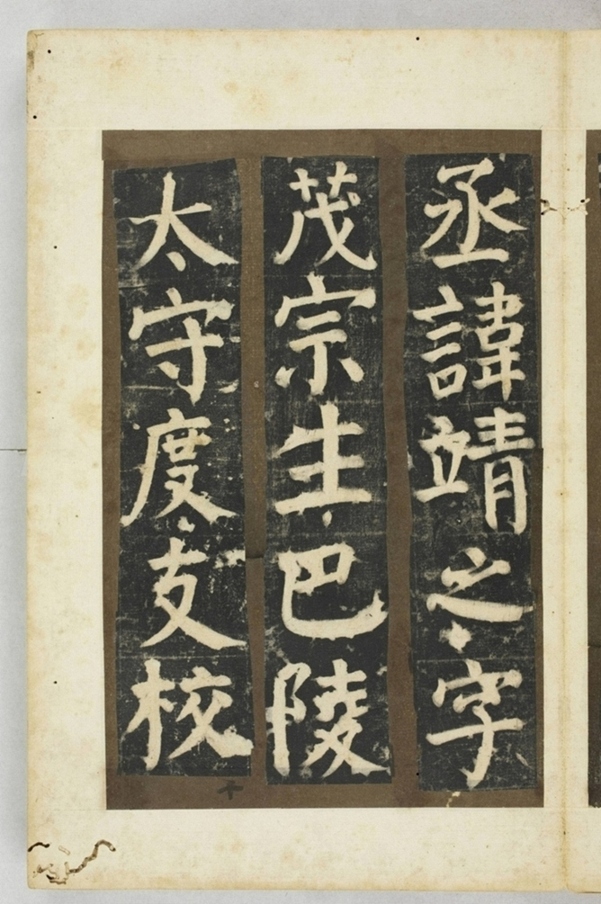 丞諱靖之字
茂宗生巴陵
太守度支校